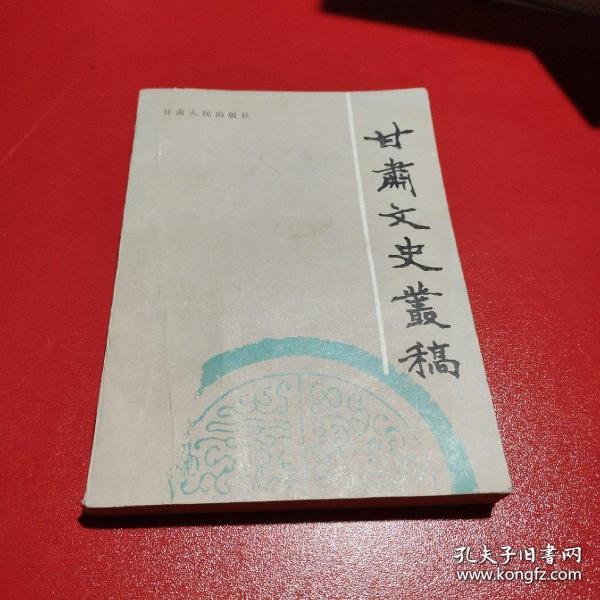 甘肃人民出版社
甘肅文史叢稿
孔夫子旧書网
www.kongfz.com